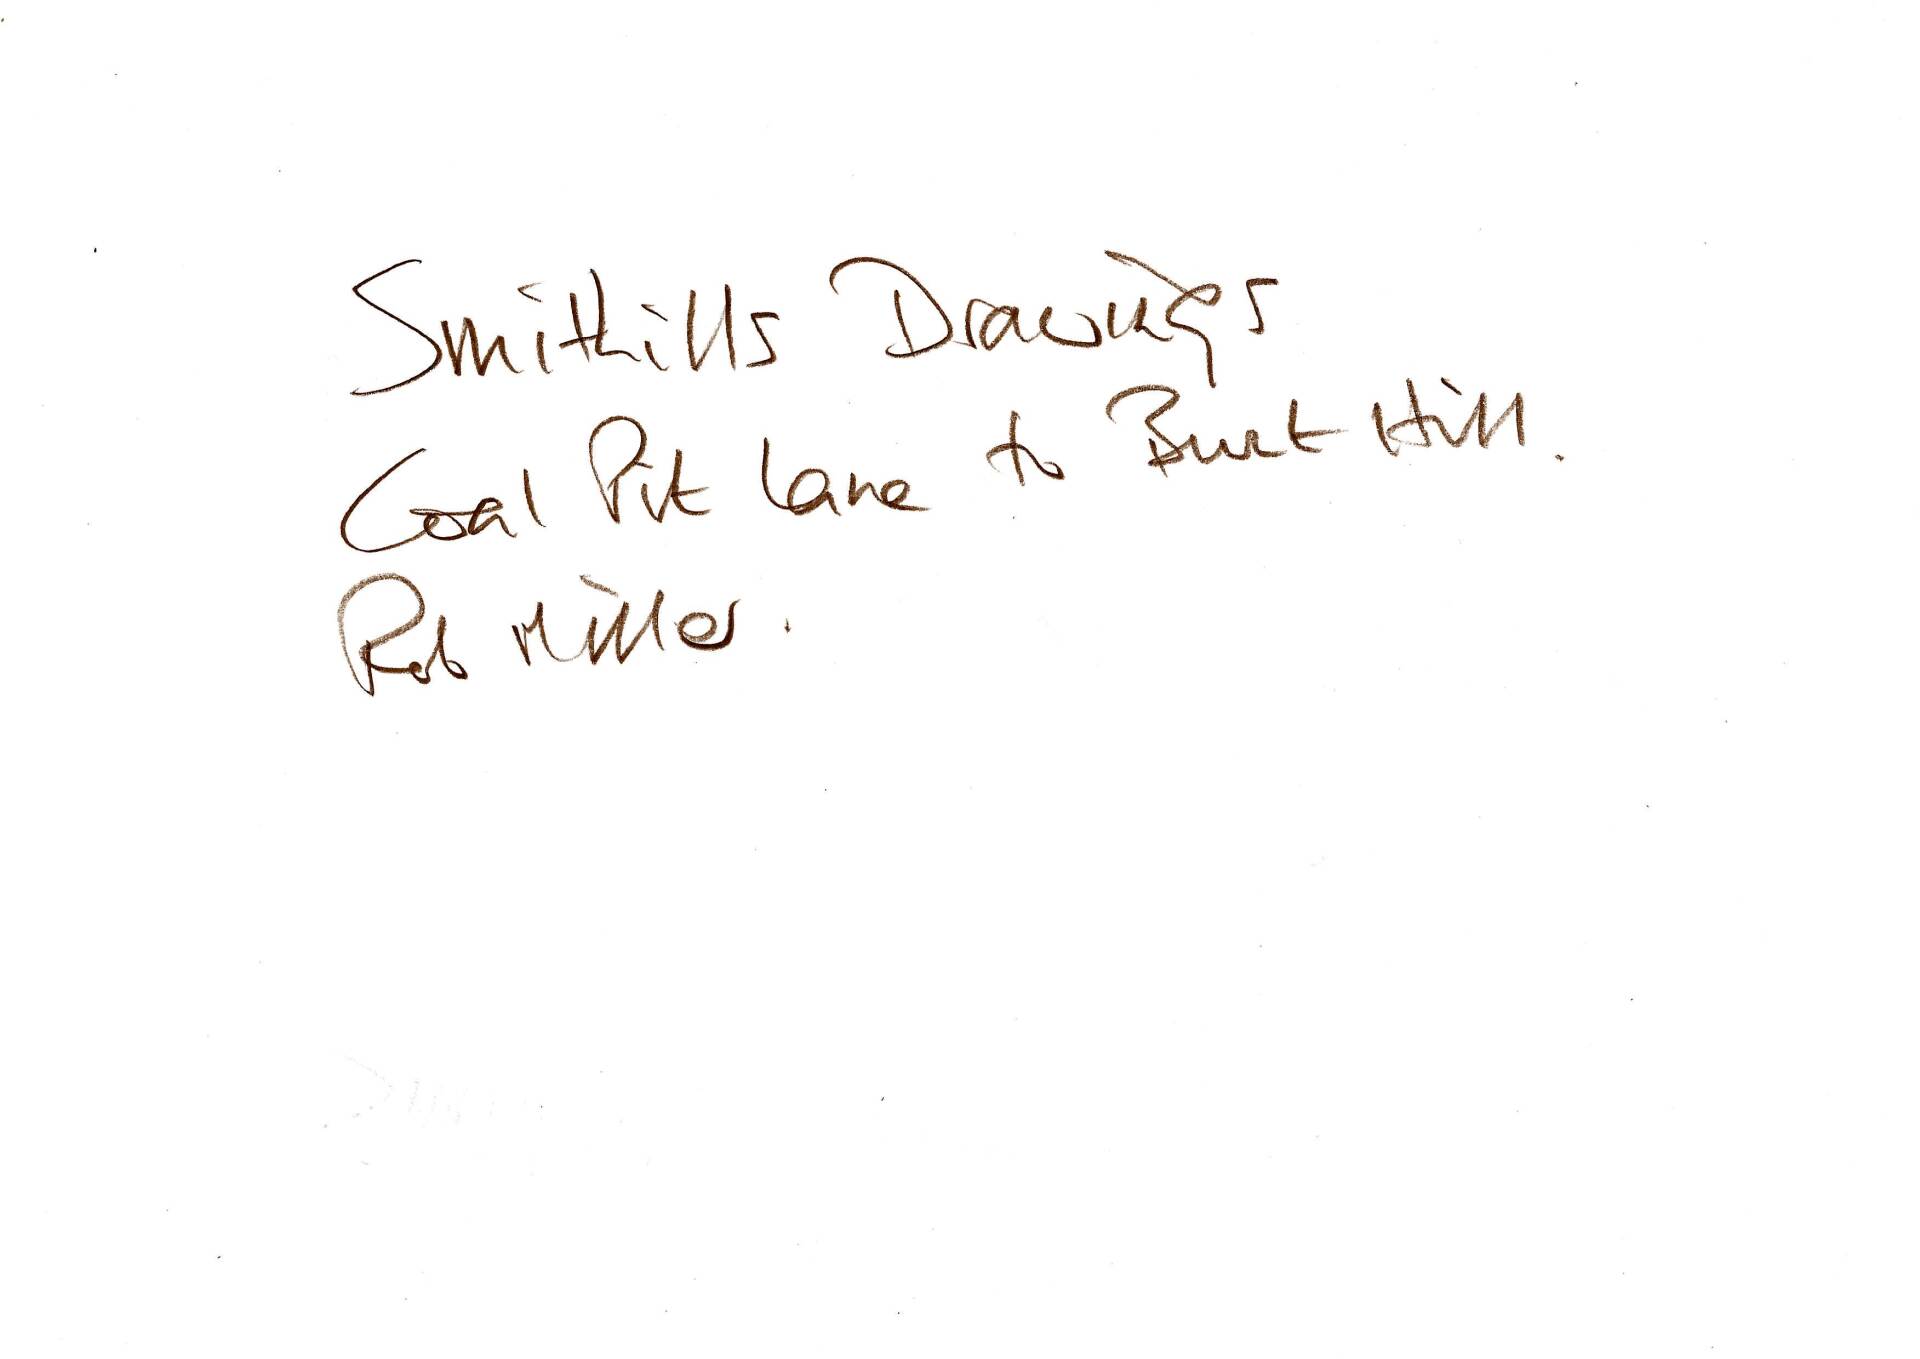 Smithills Drawings
Coal Pit Lane to Burnt Hill.
Rob Miller.